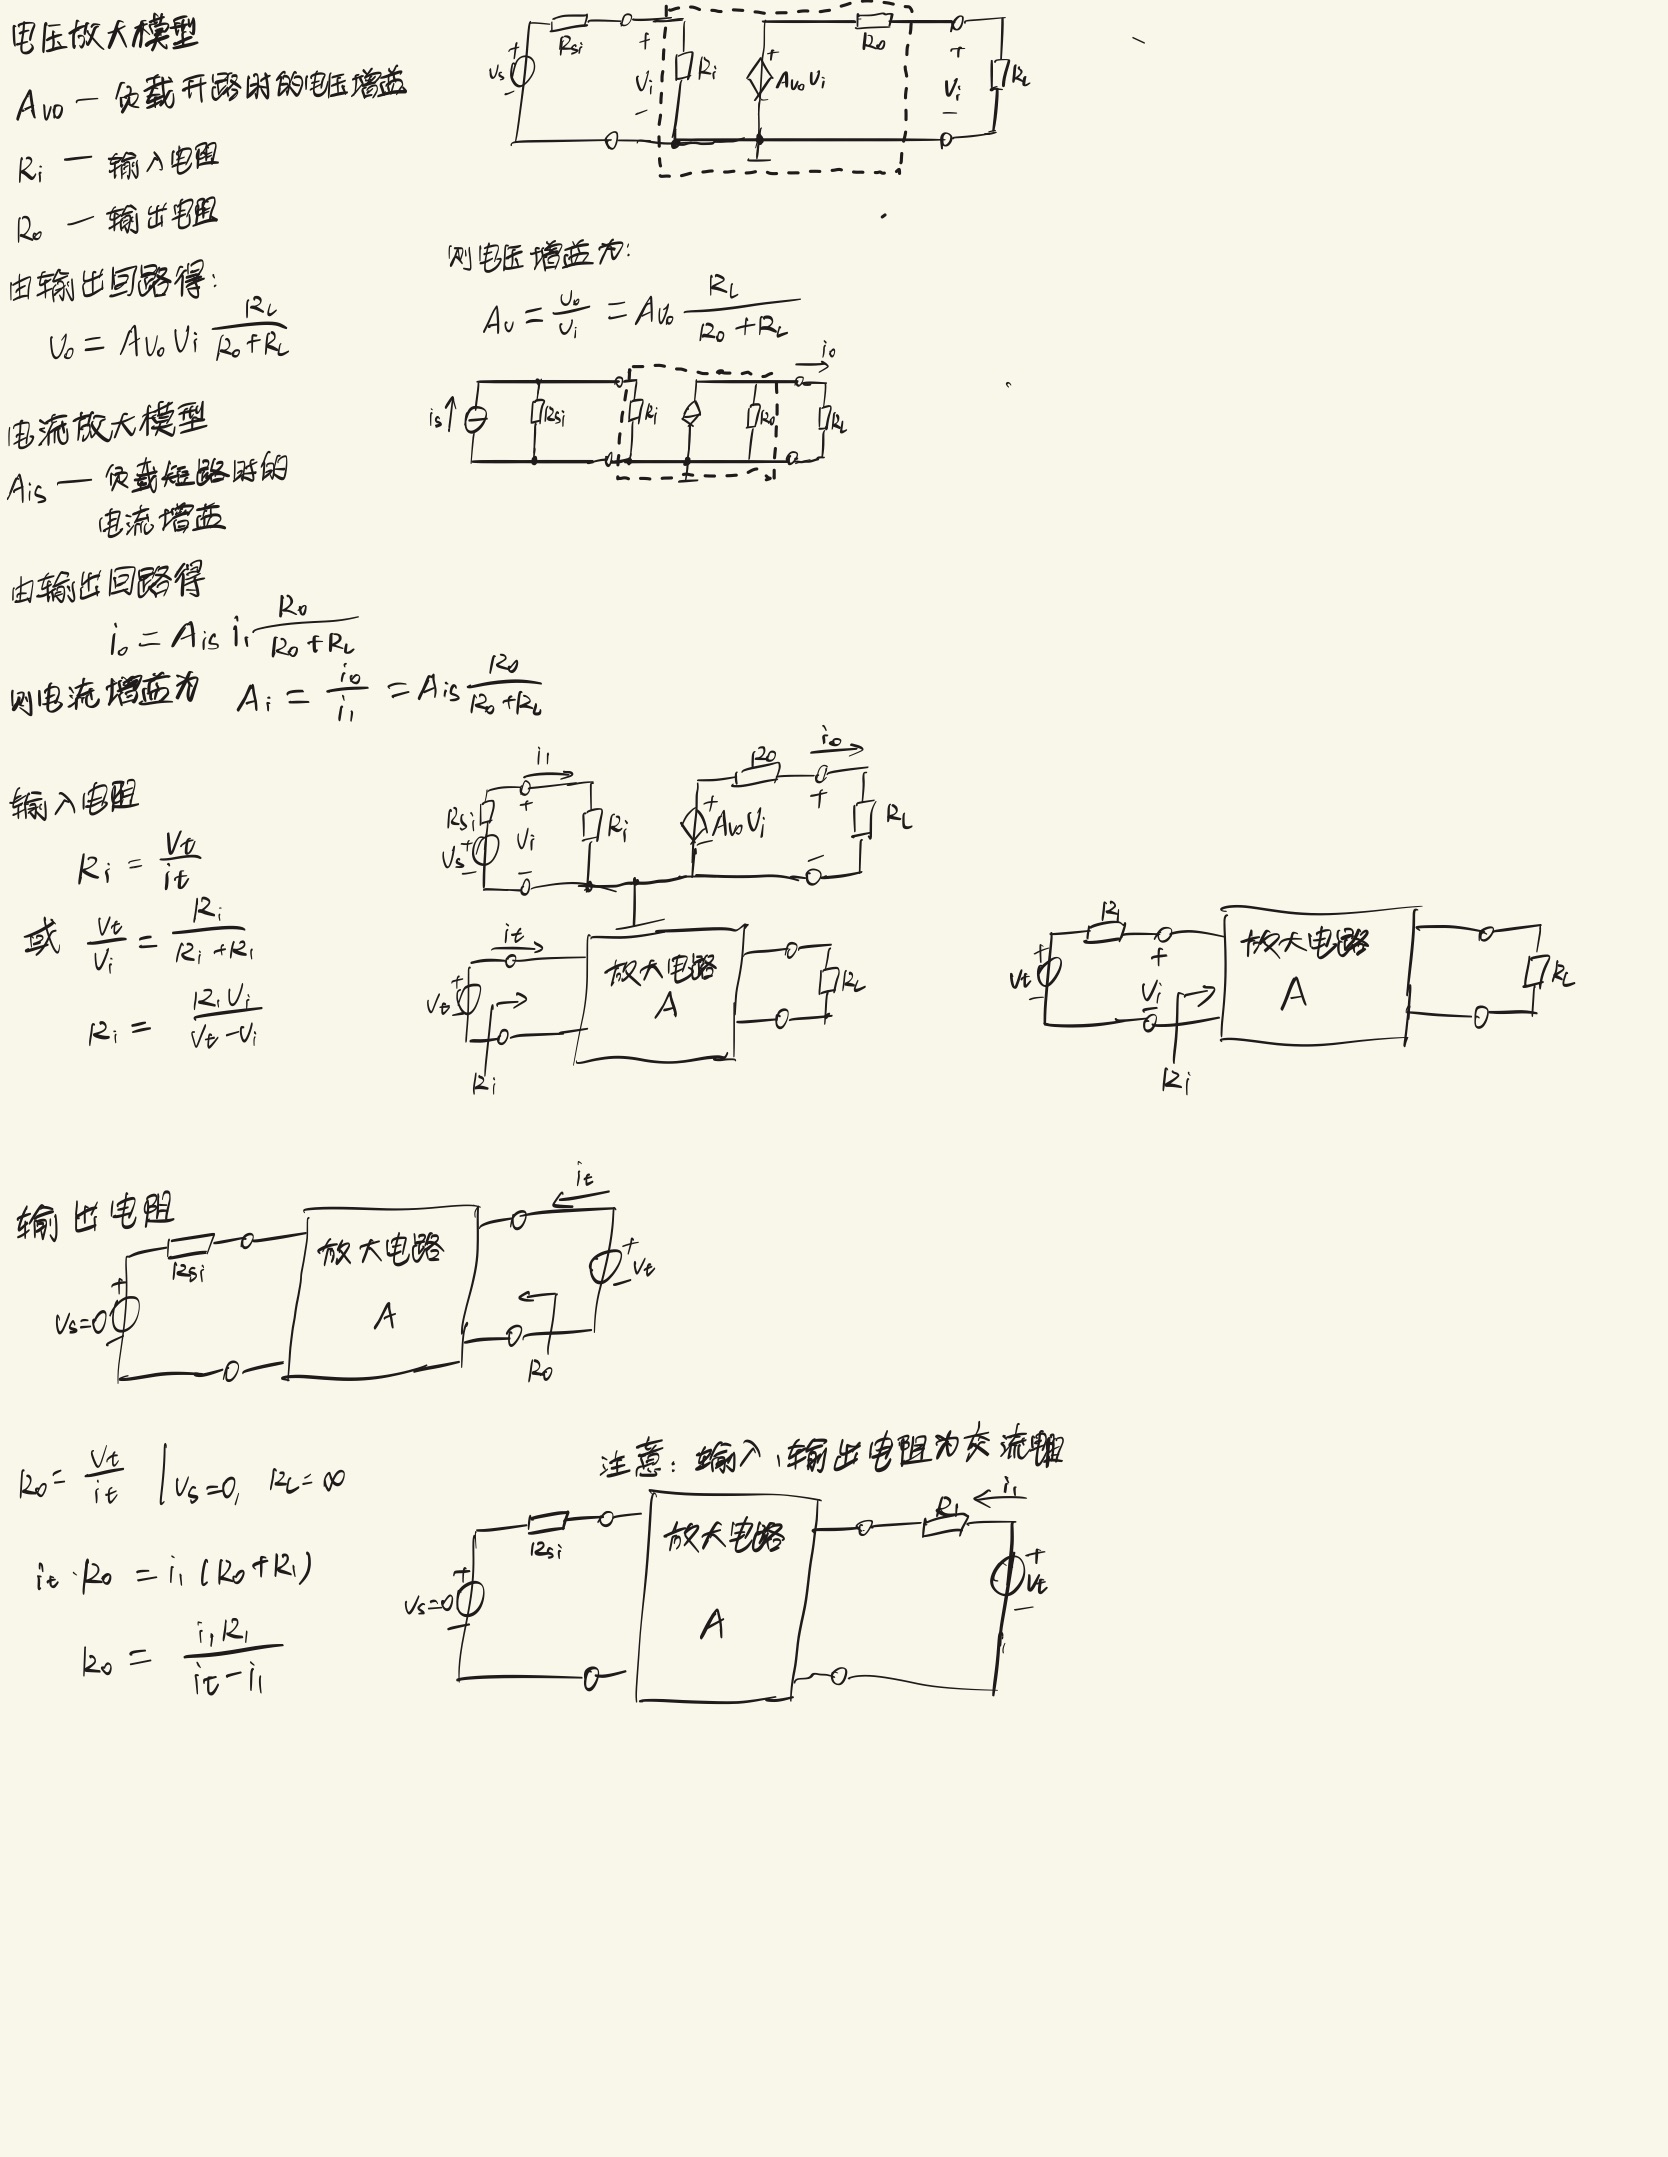 电压放大模型
Avo — 负载开路时的电压增益
Ri — 输入电阻
Ro — 输出电阻
由输出回路得:
Vo = Avo Vi RL/(Ro+RL)
Vs + - Rsi + Vi - Ri + AvoVi - Ro + Vi - RL
则电压增益为:
Av = Vo/Vi = Avo RL/(Ro+RL)
电流放大模型
Ais — 负载短路时的
电流增益
is Rsi Ri Ro io RL
由输出回路得
io = Ais i1 Ro/(Ro+RL)
则电流增益为 Ai = io/i1 = Ais Ro/(Ro+RL)
输入电阻
Ri = Vt/it
或 Vt/Vi = Ri/(Ri+R1)
Ri = R1Vi/(Vt-Vi)
i1 Rsi Vs + - + Vi - Ri + AvoVi - Ro io + - RL
it Vt + - Ri 放大电路 A RL
R1 Vt + - + Vi - Ri 放大电路 A RL
输出电阻
Vs=0 + - Rsi 放大电路 A it + Vt - Ro
Ro = Vt/it | Vs=0, RL=∞
it·Ro = i1(Ro+R1)
Ro = i1R1/(it-i1)
注意:输入、输出电阻为交流电阻
Vs=0 + - Rsi 放大电路 A R1 i1 + Vt -